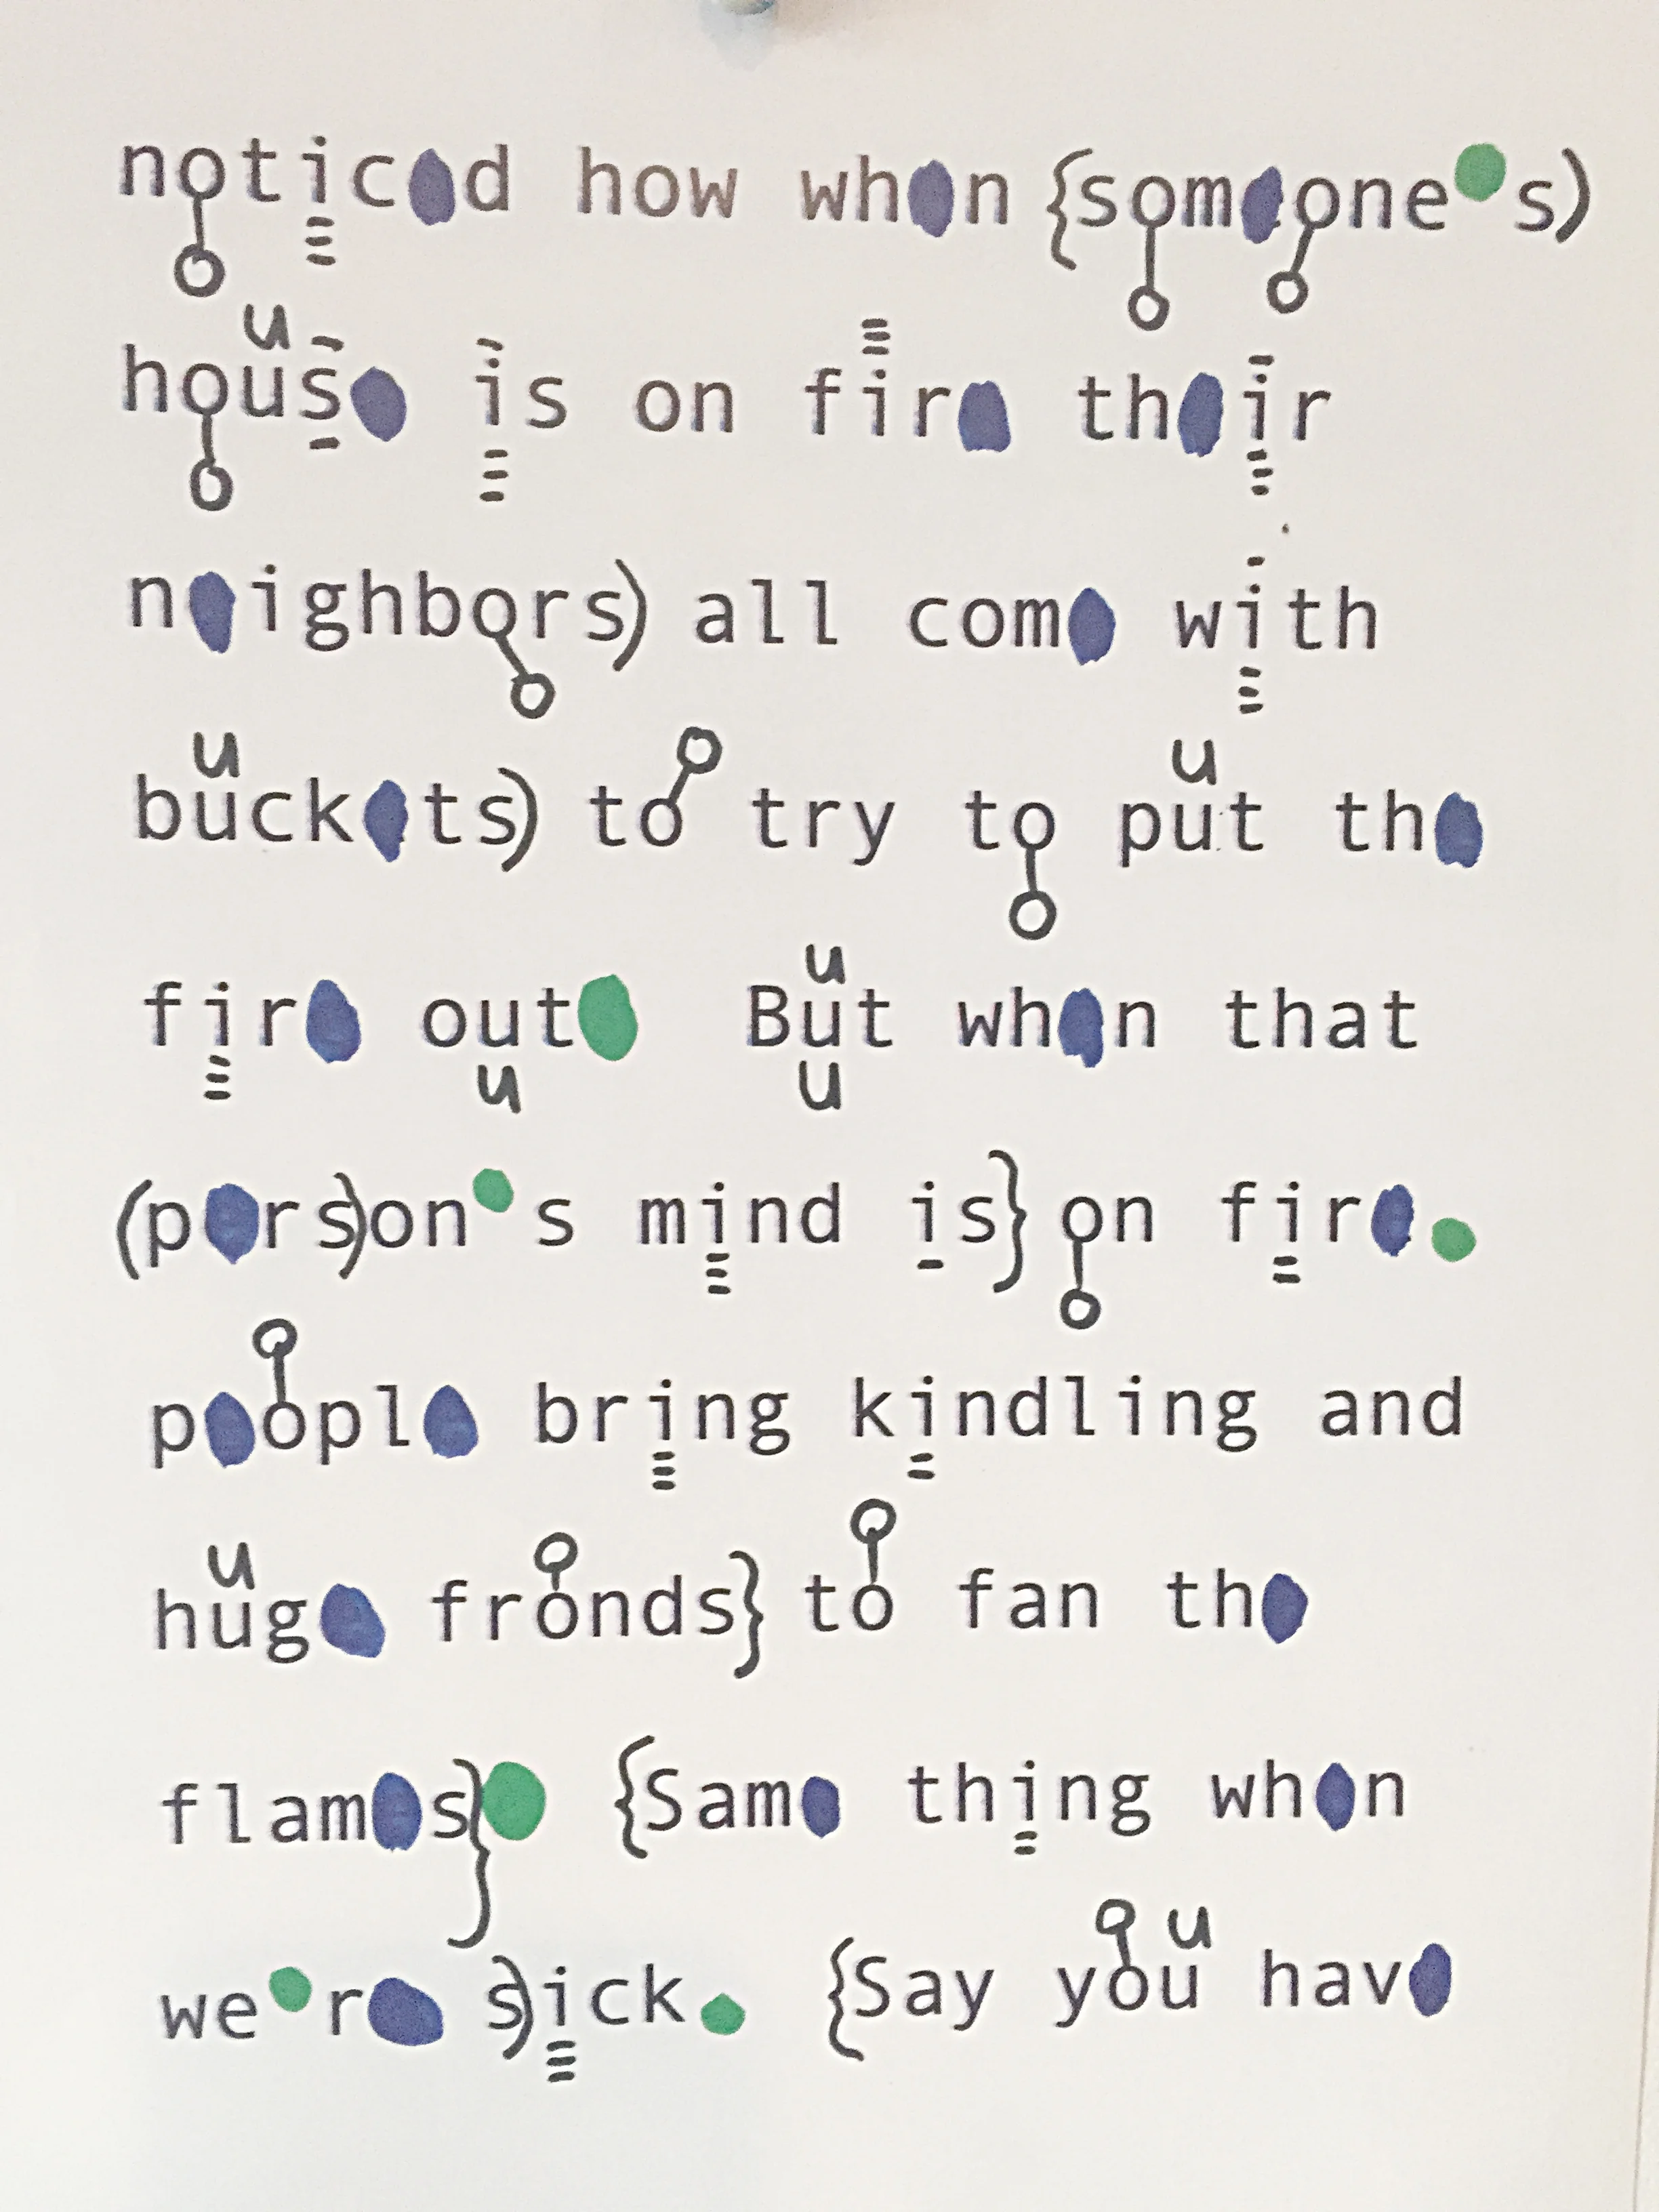 noticed how when {someone's)
house is on fire their
neighbors) all come with
buckets) to try to put the
fire out. But when that
(pers)on's mind is} on fire.
people bring kindling and
huge fronds} to fan the
flames}. {Same thing when
we're s)ick. {Say you have